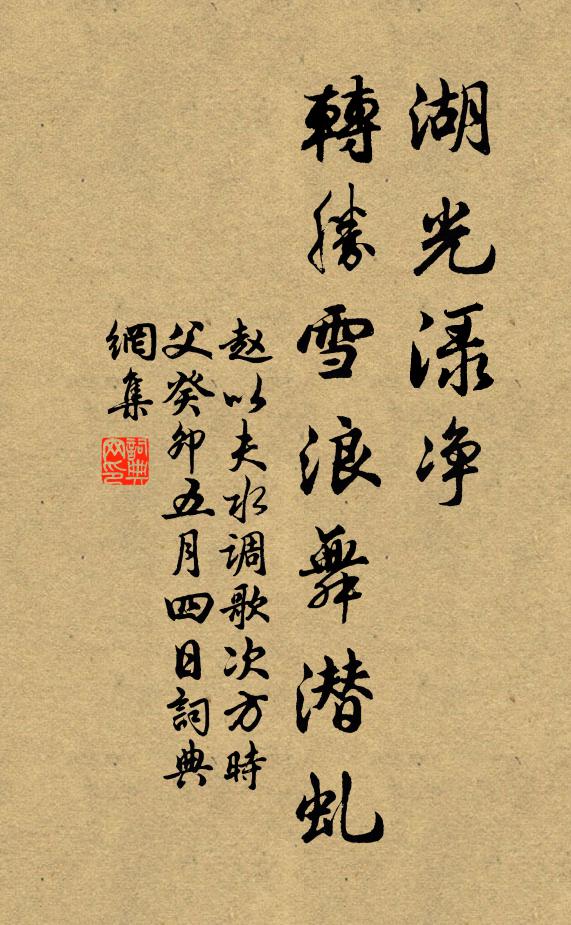 湖光渌净
轉勝雪浪舞潜虬
赵以夫水调歌次方時
父癸卯五月四日詞典
網集
詞典
网印